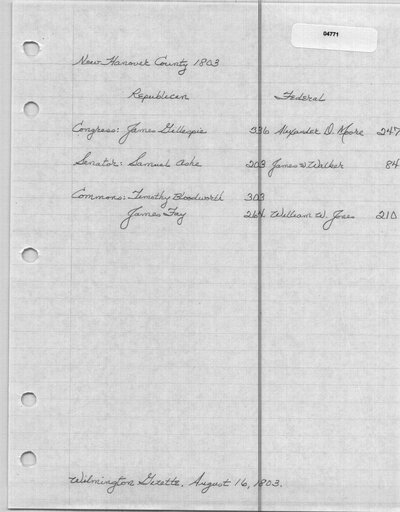 04771
New Hanover County 1803
Republican Federal
Congress: James Gillespie 336 Alexander D. Moore 247
Senator: Samuel Ashe 203 James W Walker 84
Commons: Timothy Bloodworth 303
James Fay 264 William W. Jones 210
Wilmington Gazette. August 16, 1803.